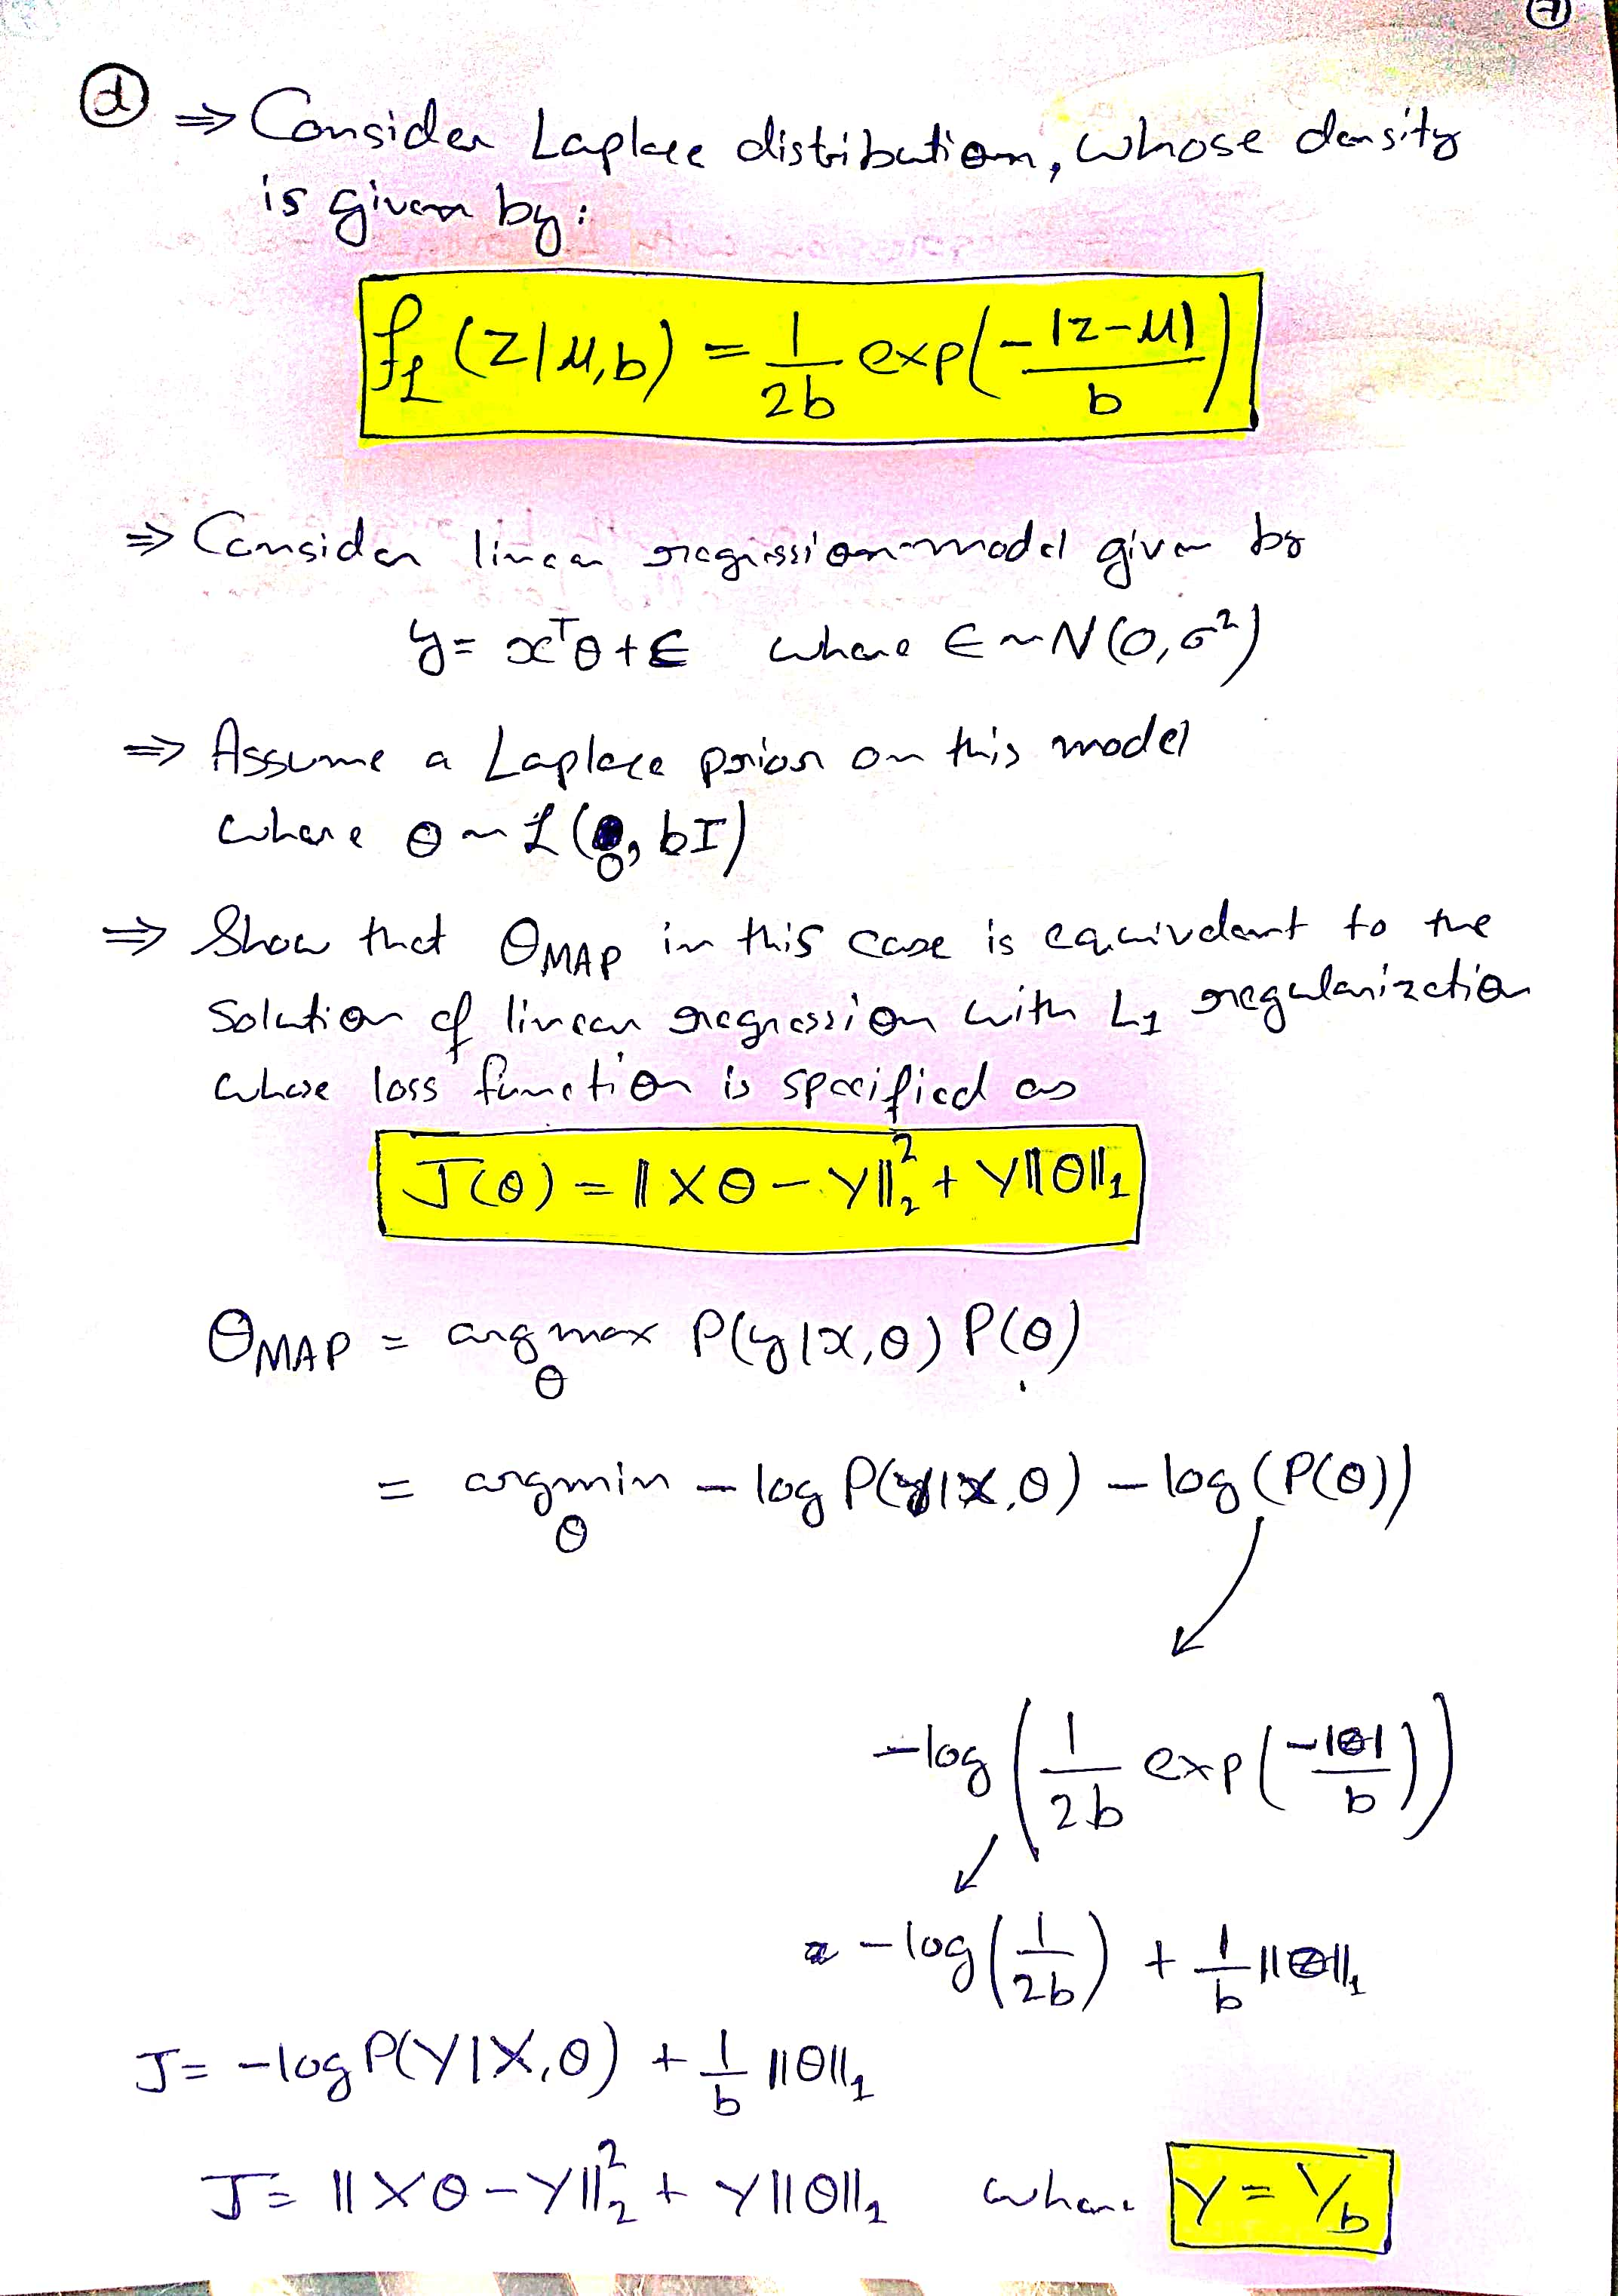 7
d ⇒ Consider Laplace distribution, whose density
is given by:
f_L (z|μ,b) = 1/2b exp(-|z-μ|/b)
⇒ Consider linear regression model given by
y = x^T θ + ϵ where ϵ ~ N(0,σ²)
⇒ Assume a Laplace prior on this model
where θ ~ L(0, bI)
⇒ Show that θ_MAP in this case is equivalent to the
solution of linear regression with L₁ regularization
whose loss function is specified as
J(θ) = ||Xθ - Y||₂² + γ||θ||₁
θ_MAP = argmax_θ P(y|x,θ) P(θ)
= argmin_θ - log P(y|x,θ) - log(P(θ))
-log(1/2b exp(-|θ|/b))
= -log(1/2b) + 1/b ||θ||₁
J = -log P(Y|X,θ) + 1/b ||θ||₁
J = ||Xθ - Y||₂² + γ||θ||₁ where γ = 1/b